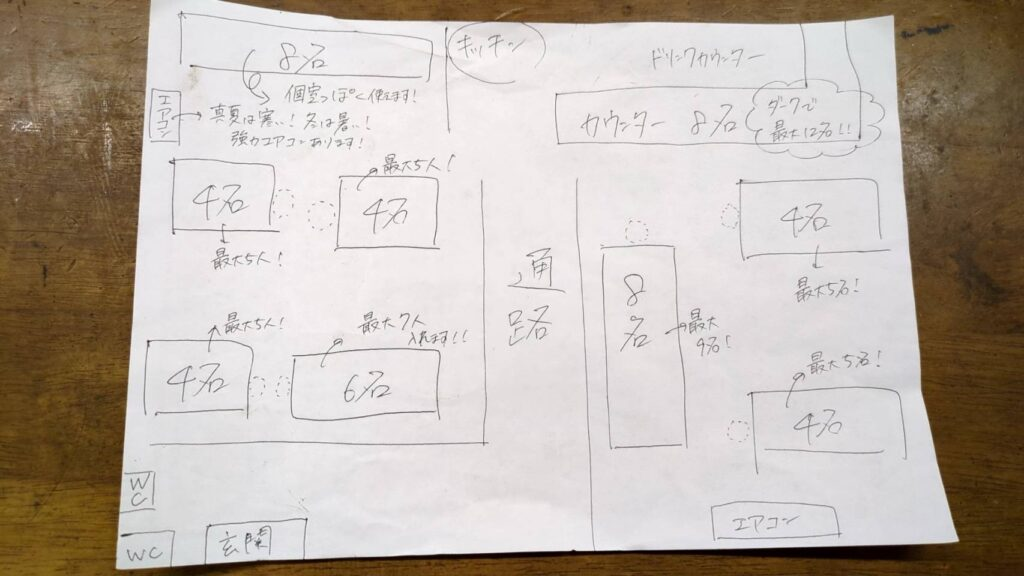 8名
個室っぽく使えます!
エアコン
真夏は寒い!冬は暑い!
強力エアコンあります!
キッチン
ドリンクカウンター
カウンター 8名
ダークで
最大12名!!
4名
最大5人!
最大5人!
4名
最大5人!
4名
最大7人
入れます!!
6名
通路
8名
最大
9名!
4名
最大5名!
最大5名!
4名
WC
WC
玄関
エアコン